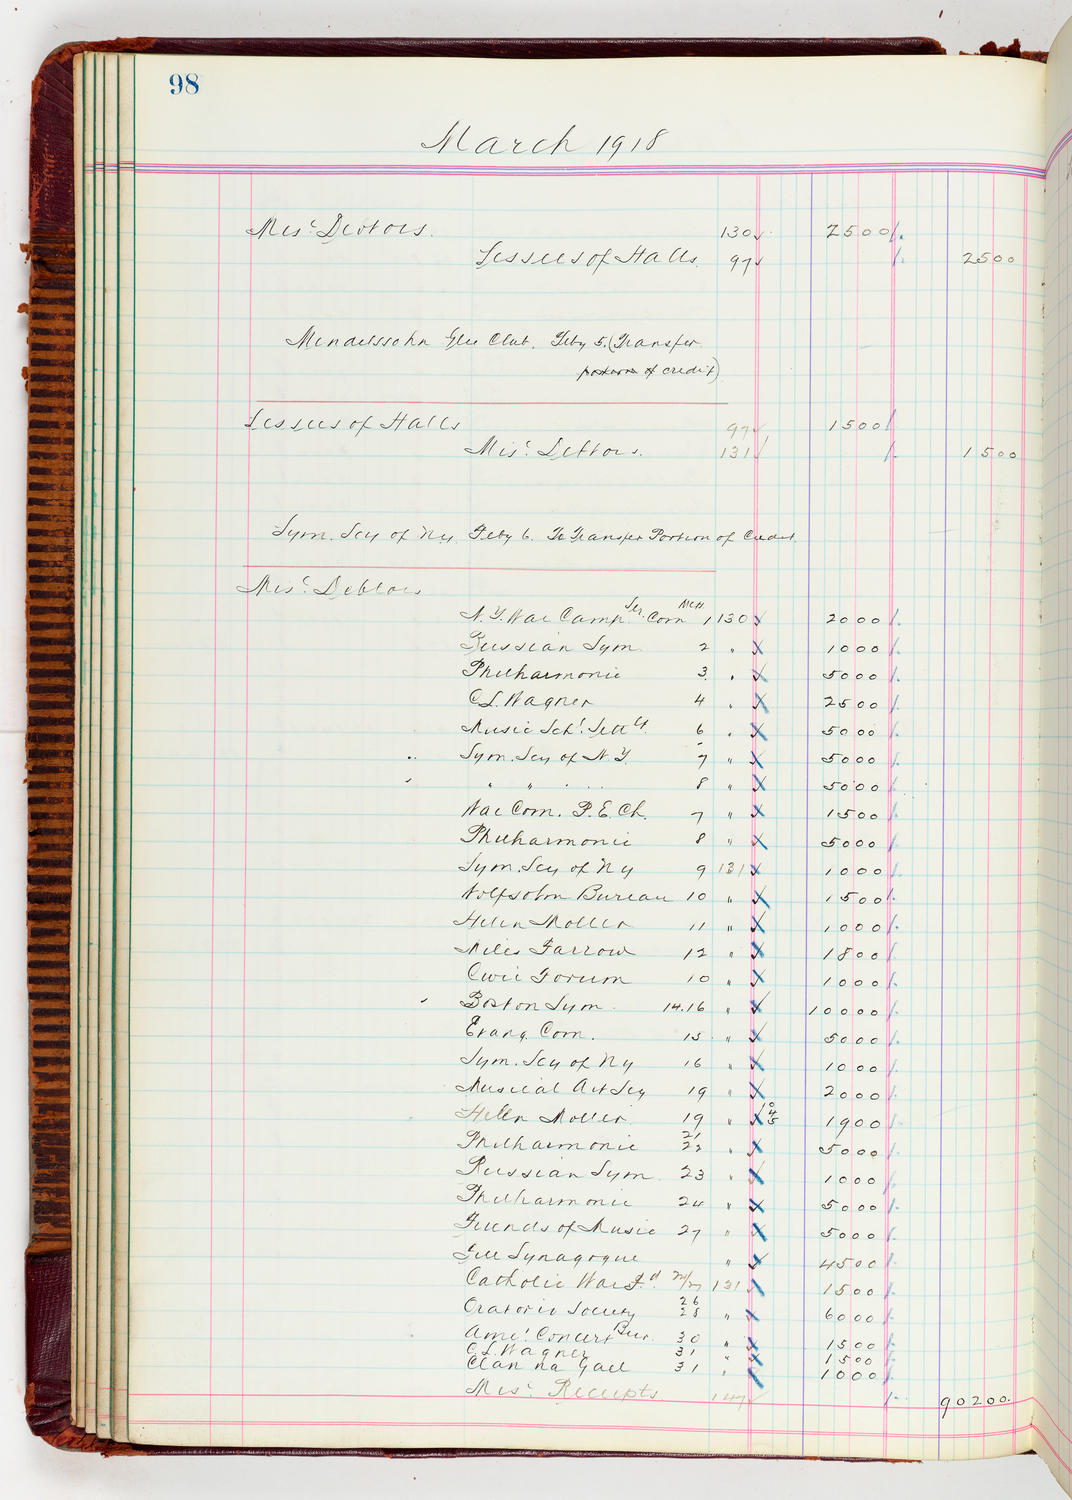 98
March 1918
Misc. Debtors. 130 2500
Lessees of Halls. 97 2500
Mendelssohn Glee Club. Feby 5. (Transfer
portion of credit)
Lessees of Halls 97 1500
Misc. Debtors. 131 1500
Sym. Scy of Ny Feby 6. To Transfer Portion of Credit
Misc. Debtors
N.Y. War Camp. Ser. Com Mch 1 130 2000
Russian Sym. 2 " 1000
Philharmonic 3 " 5000
C.L. Wagner 4 " 2500
Music Sch. Settlt. 6 " 5000
Sym. Scy of N.Y. 7 " 5000
" " " " 8 " 5000
War Com. P.E. Ch. 7 " 1500
Philharmonic 8 " 5000
Sym. Scy of Ny 9 131 1000
Wolfsohn Bureau 10 " 1500
Helen Moller 11 " 1000
Miles Farrow 12 " 1800
Civic Forum 10 " 1000
Boston Sym. 14.16 " 10000
Evang. Com. 15 " 5000
Sym. Scy of Ny 16 " 1000
Musical Art Scy 19 " 2000
Helen Moller. 19 " 1900
Philharmonic 21 22 " 5000
Russian Sym. 23 " 1000
Philharmonic 24 " 5000
Friends of Music 27 " 5000
Free Synagogue " 4500
Catholic War Fd. 131 1500
Oratorio Society 26 28 " 6000
Amer. Concert Bur. 30 " 1500
C.L. Wagner 31 " 1500
Clan na Gael 31 " 1000
Misc. Receipts 147 90200